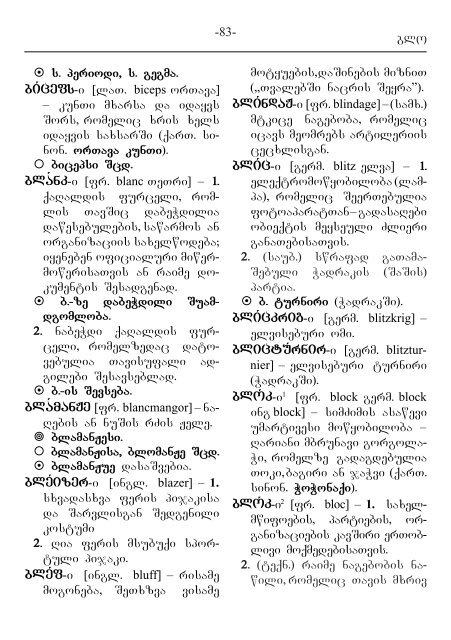 -83-
ბლო
⦿ ს. პერიოდი, ს. გეგმა.
ბი́ცეფს-ი [ლათ. biceps ორთავა]
– კუნთი მხარსა და იდაყვს
შორს, რომელიც ხრის ხელს
იდაყვის სახსარში (ქართ. სი-
ნონ. ორთავა კუნთი).
○ ბიცეპსი შცდ.
ბლა́ნკ-ი [ფრ. blanc თეთრი] – 1.
ქაღალდის ფურცელი, რომ-
ლის თავშიც დაბეჭდილია
დაწესებულების, საწარმოს ან
ორგანიზაციის სახელწოდება;
იყენებენ ოფიციალური მიწერ-
მოწერისათვის ან რაიმე დო-
კუმენტის შესადგენად.
⦿ ბ.-ზე დაბეჭდილი შუამ-
დგომლობა.
2. ნაბეჭდი ქაღალდის ფურ-
ცელი, რომელზედაც დატო-
ვებულია თავისუფალი ად-
გილები შესავსებლად.
⦿ ბ.-ის შევსება.
ბლა́მანჟე [ფრ. blancmangor] – ნა-
ღების ან ნუშის რძის ჟელე.
◎ ბლამანჟესი.
○ ბლამანჟისა, ბლომანჟე შცდ.
⦿ ბლამანჟუე დასაშვებია.
ბლე́იზერ-ი [ინგლ. blazer] – 1.
სხვადასხვა ფერის პიჯაკისა
და შარვლისგან შედგენილი
კოსტუმი
2. ღია ფერის მსუბუქი სპორ-
ტული პიჯაკი.
ბლე́ფ-ი [ინგლ. bluff] – რისამე
მოგონება, შეთხზვა ვისამე
მოტყუების, დაშინების მიზნით
(„თვალებში ნაცრის შეყრა“).
ბლი́ნდაჟ-ი [ფრ. blindage] – (სამხ.)
მტკიცე ნაგებობა, რომელიც
იცავს მეომრებს არტილერიის
ცეცხლისგან.
ბლი́ც-ი [გერმ. blitz ელვა] – 1.
ელექტრომოწყობილობა (ლამ-
პა), რომელიც შეერთებულია
ფოტოაპარატთან – გადასაღები
ობიექტის მეყსეული ძლიერი
განათებისათვის.
2. (საუბ.) სწრაფად გათამა-
შებული ჭადრაკის (შაშის)
პარტია.
⦿ ბ. ტურნირი (ჭადრაკში).
ბლი́ცკრიგ-ი [გერმ. blitzkrig] –
ელვისებური ომი.
ბლიცტუ́რნირ-ი [გერმ. blitztur-
nier] – ელვისებური ტურნირი
(ჭადრაკში).
ბლო́კ-ი¹ [ფრ. block გერმ. block
ინგ block] – სიმძიმის ასაწევი
უმარტივესი მოწყობილობა –
ღარიანი მბრუნავი გორგოლა-
ჭი, რომელზე გადაგდებულია
თოკი, ბაგირი ან ჯაჭვი (ქართ.
სინონ. ჭოჭონაქი).
ბლო́კ-ი² [ფრ. bloc] – 1. სახელ-
მწიფოების, პარტიების, ორ-
განიზაციების კავშირი ერთობ-
ლივი მოქმედებისათვის.
2. (ტექნ.) რაიმე ნაგებობის ნა-
წილი, რომელიც თავის მხრივ